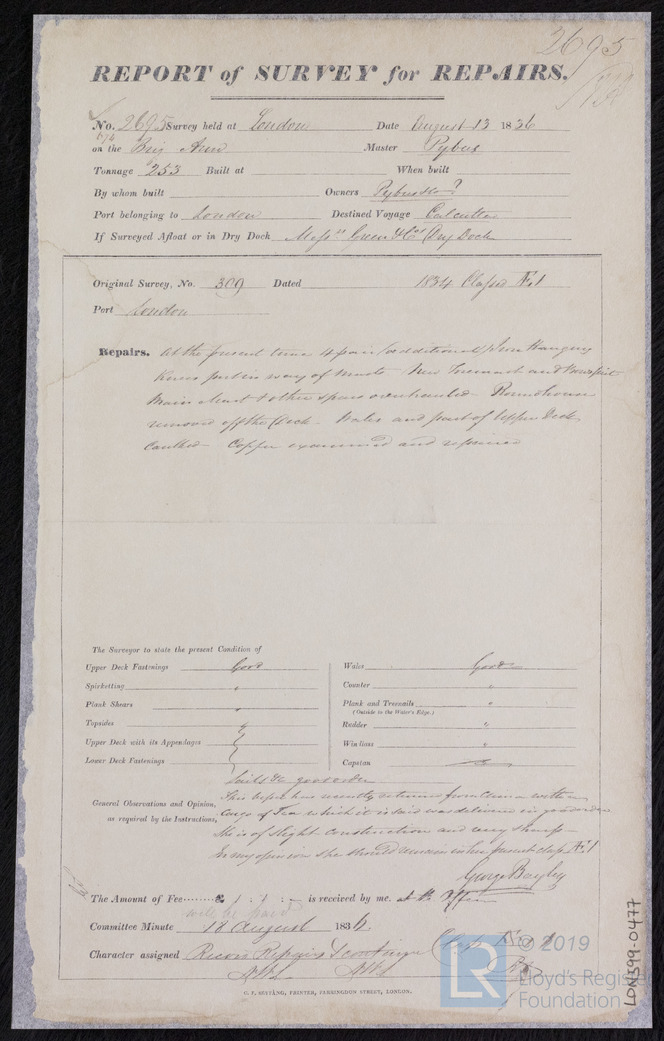 2695
REPORT of SURVEY for REPAIRS.
No. 2695 Survey held at London Date August 13 1836
on the Brig Ann Master Pybus
Tonnage 253 Built at When built
By whom built Owners Pybus &Co?
Port belonging to London Destined Voyage Calcutta
If Surveyed Afloat or in Dry Dock Messrs Green &Cos Dry Dock
Original Survey, No. 309 Dated 1834 Classed Æ1
Port London
Repairs. At the present time 4 pair additional Iron Hanging
Knees put in way of New Foremast and Bowsprit
Main Mast & other spars overhauled Roundhouse
removed off the Deck. Wales and part of Upper Deck
Caulked Copper examined and repaired
The Surveyor to state the present Condition of
Upper Deck Fastenings Good
Spirketting "
Plank Shears "
Topsides "
Upper Deck with its Appendages
Lower Deck Fastenings
Wales Good
Counter "
Plank and Treenails "
(Outside to the Water's Edge.)
Rudder "
Windlass "
Capstan
Sails &c good order
General Observations and Opinion, This vessel has recently returned from China with a
as required by the Instructions, Cargo of Tea which it is said was delivered in good order
She is of slight construction and very sharp
In my opinion she should remain in her present class Æ1
George Bayley
The Amount of Fee £ : : is received by me. at the Office
will be paid
Committee Minute 18 August 1836.
Character assigned Recover Repairs & continue Class Æ 1
C. F. SEYFANG, PRINTER, FARRINGDON STREET, LONDON.
LR © 2019
Lloyd's Register
Foundation
LON399-0477